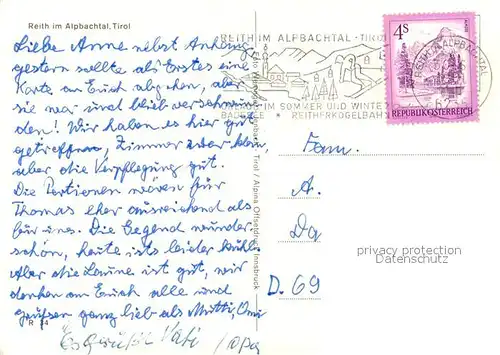 Reith im Alpbachtal, Tirol
Liebe Anne nebst Anhang,
gestern sollte als Erstes eine
Karte an Euch abgehen, aber
sie war und blieb verschwun
den! Wir haben es hier gut
getroffen, Zimmer zwar klein,
aber die Verpflegung gut.
Die Portionen waren für
Thomas eher ausreichend als
für uns. Die Gegend wunder-
schön, heute ists leider kühl.
Aber die Laune ist gut, wir
denken an Euch alle und
grüßen ganz lieb als Mutti, Omi
Es grüßt Vati / Opa
R 24
Alpbach, Tirol / Alpina Offsetdruck, Innsbruck
REITH IM ALPBACHTAL · TIROL
IM SOMMER UND WINTER
BADESEE * REITHERKOGELBAHN
REITH IM ALPBACHTAL
4S
REPUBLIK ÖSTERREICH
Fam.
A.
Da
D. 69
privacy protection
Datenschutz